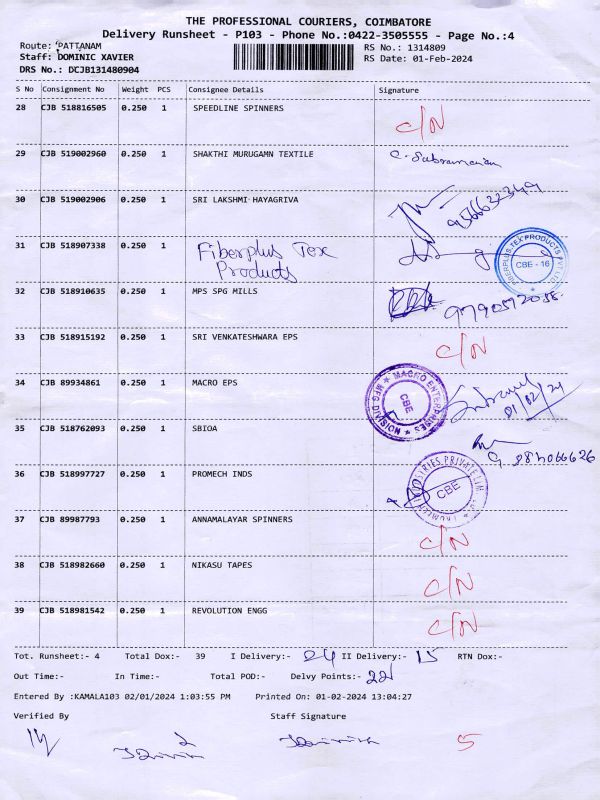 THE PROFESSIONAL COURIERS, COIMBATORE
Delivery Runsheet - P103 - Phone No.:0422-3505555 - Page No.:4
Route: PATTANAM RS No.: 1314809
Staff: DOMINIC XAVIER RS Date: 01-Feb-2024
DRS No.: DCJB131480904
S No Consignment No Weight PCS Consignee Details Signature
28 CJB 518816505 0.250 1 SPEEDLINE SPINNERS C/N
29 CJB 519002960 0.250 1 SHAKTHI MURUGAMN TEXTILE C. Subramanian
30 CJB 519002906 0.250 1 SRI LAKSHMI HAYAGRIVA
31 CJB 518907338 0.250 1 Fiberplus Tex Products
FIBERPLUS TEX PRODUCTS PVT LTD CBE - 16
32 CJB 518910635 0.250 1 MPS SPG MILLS
33 CJB 518915192 0.250 1 SRI VENKATESHWARA EPS C/N
34 CJB 89934861 0.250 1 MACRO EPS
MACRO ENTERPRISES MFG DIVISION CBE 01/02/24
35 CJB 518762093 0.250 1 SBIOA
36 CJB 518997727 0.250 1 PROMECH INDS
INDUSTRIES PRIVATE LIM CBE
37 CJB 89987793 0.250 1 ANNAMALAYAR SPINNERS C/N
38 CJB 518982660 0.250 1 NIKASU TAPES C/N
39 CJB 518981542 0.250 1 REVOLUTION ENGG C/N
Tot. Runsheet:- 4 Total Dox:- 39 I Delivery:- 24 II Delivery:- 15 RTN Dox:-
Out Time:- In Time:- Total POD:- Delvy Points:- 22
Entered By :KAMALA103 02/01/2024 1:03:55 PM Printed On: 01-02-2024 13:04:27
Verified By Staff Signature
5